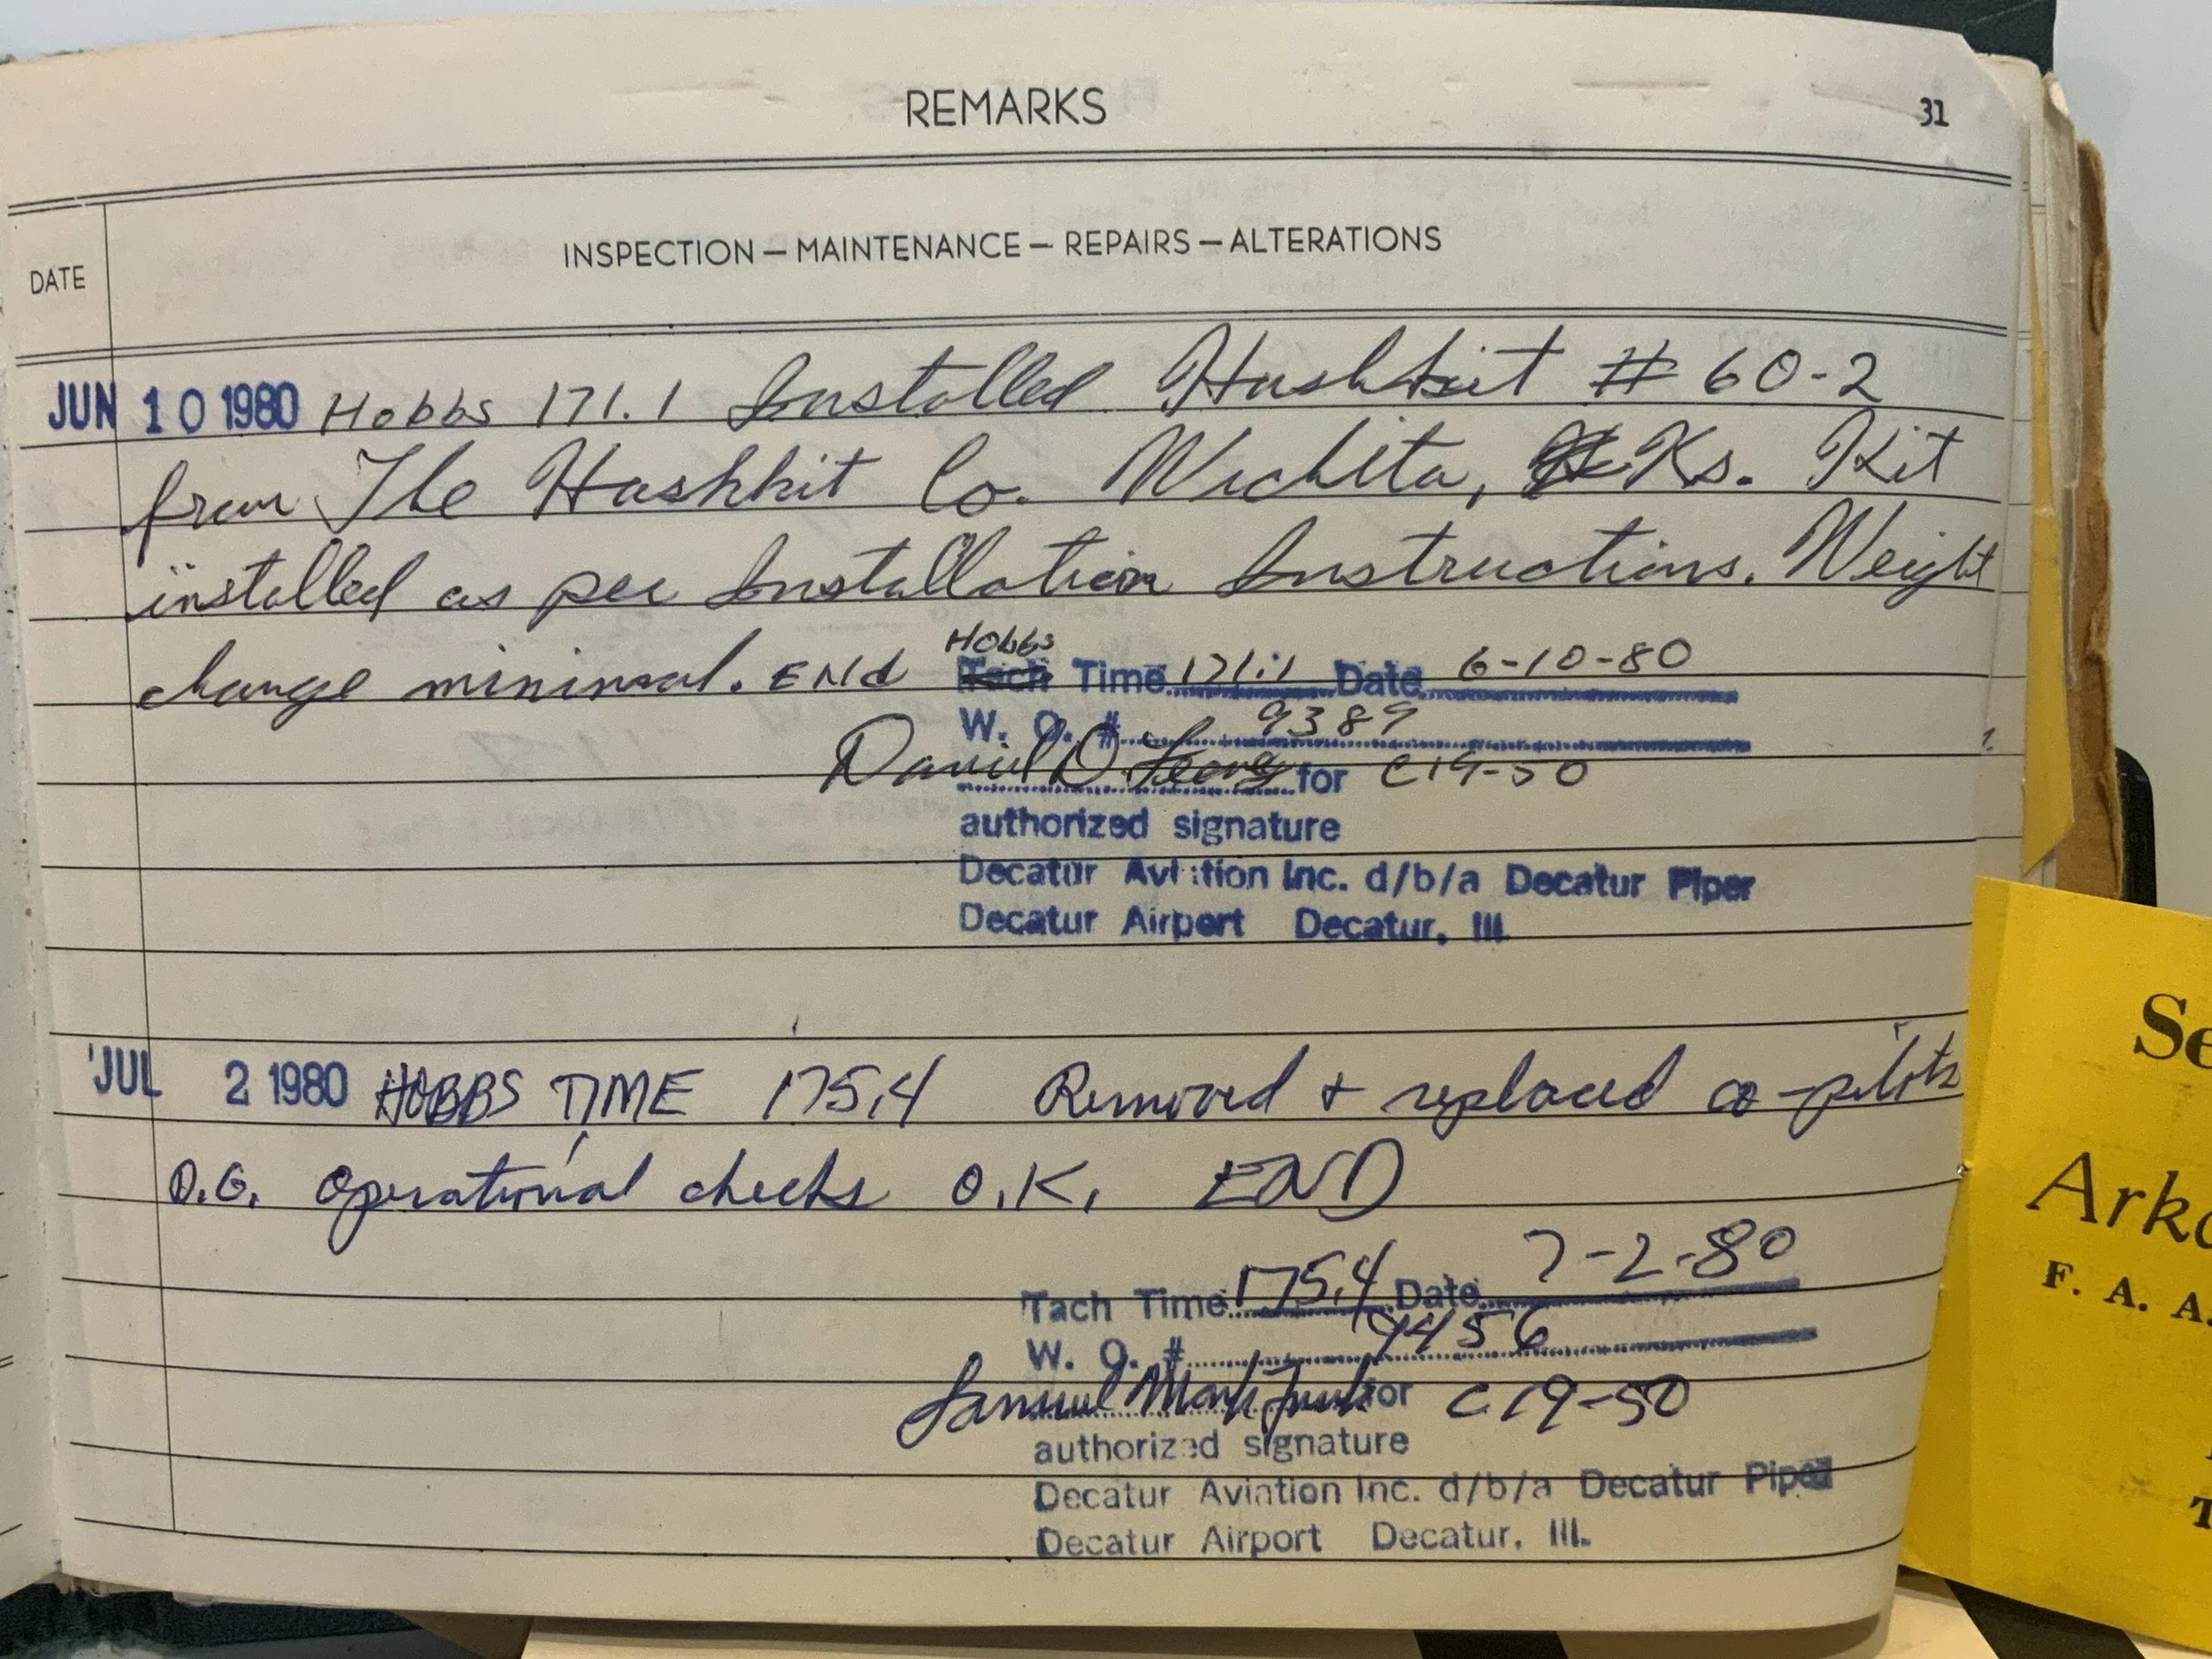 REMARKS
31
DATE
INSPECTION — MAINTENANCE — REPAIRS — ALTERATIONS
JUN 10 1980 Hobbs 171.1 Installed Hushkit # 60-2
from The Hushkit Co. Wichita, Ks. Kit
installed as per Installation Instructions. Weight
change minimal. END
Hobbs
Tach Time 171.1 Date 6-10-80
W. O. # 9389
David D. for C19-50
authorized signature
Decatur Aviation Inc. d/b/a Decatur Piper
Decatur Airport Decatur, Ill.
JUL 2 1980 HOBBS TIME 175.4 Removed + replaced co-pilots
D.G. operational checks O.K. END
Tach Time 175.4 Date 7-2-80
W. O. # 9456
Samuel Mark for C19-50
authorized signature
Decatur Aviation Inc. d/b/a Decatur Piper
Decatur Airport Decatur, Ill.
Se
Arka
F. A. A.